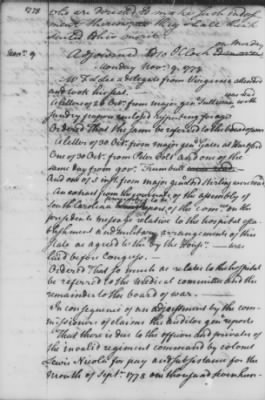 1778
who are directed to make such indorsement thereupon they shall think
suited to his merit.
Adjourned to 10 O'Clock on Monday
Nov. 9
Monday Nov. 9, 1778
Mr F. L. Lee a delegate from Virginia attended
and took his seat.
A letter of 26 Oct. from major gen Sullivan with
sundry papers enclosed was read
Ordered That the same be referred to the board of war
A letter of 30 Oct. from major gen Gates at Hartford
One of 30 Oct. from Peter Colt And one of the
same day from gov. Trumbull
And one of 5 inst from major gen lord Stirling were read
An extract from the of the assembly of
South Carolina report of the Comee on the
presidents message relative to the hospital establishment and military arrangements of this
State as agreed to by the House was
laid before Congress.
Ordered That so much as relates to the hospital
be referred to the medical committee and the
remainder to the board of war.
In consequence of an adjustment by the commissioners of claims the auditor gen reports
That there is due to the officers and privates of
the invalid regiment commanded by colonel
Lewis Nicola for pay and subsistance for the
month of Sept. 1778 one thousand seven hun-